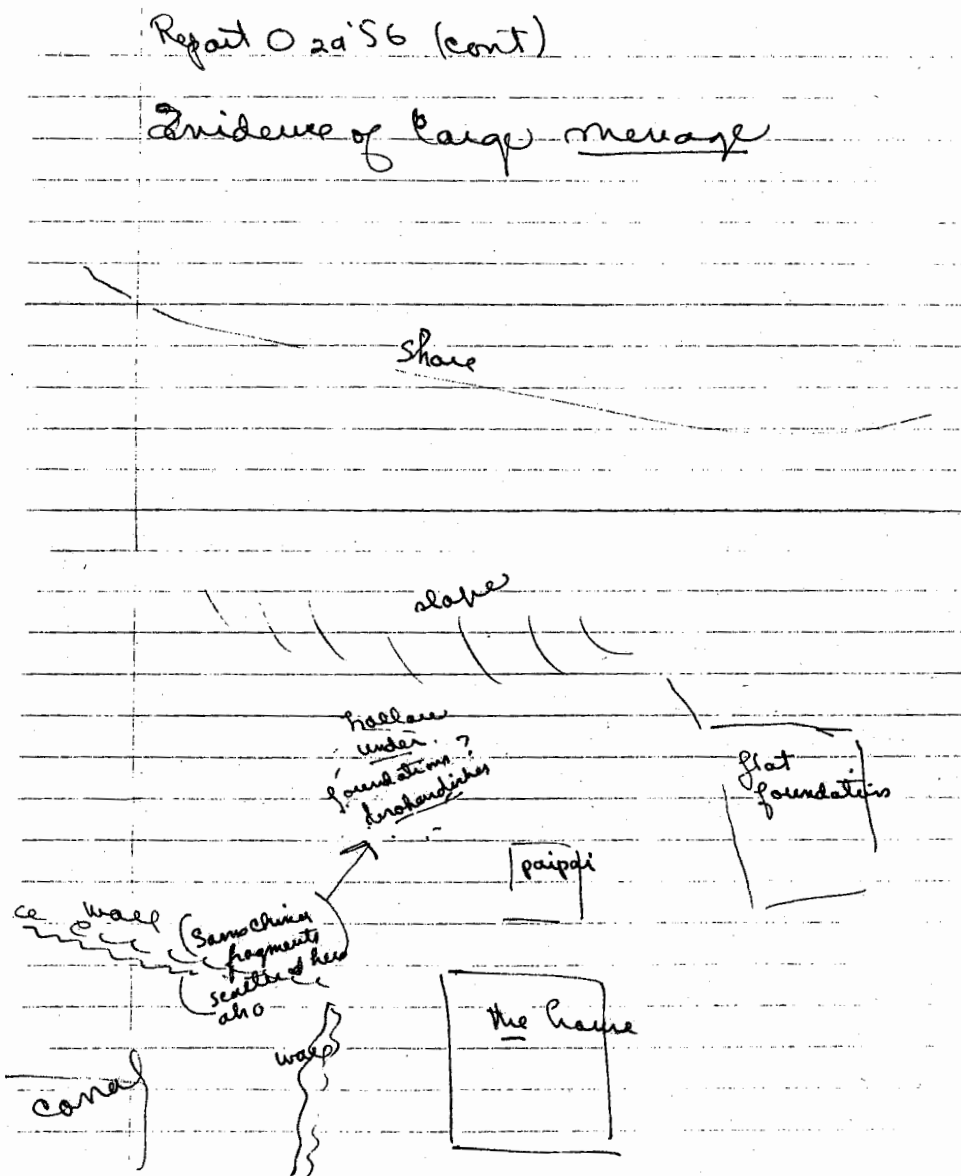 Report O 2a'56 (cont)
Evidence of large menage
Shore
slope
hollow
under
foundations?
flat
foundations
paipai
wall
(Some china
fragments
scattered here
also
the house
wall
canal